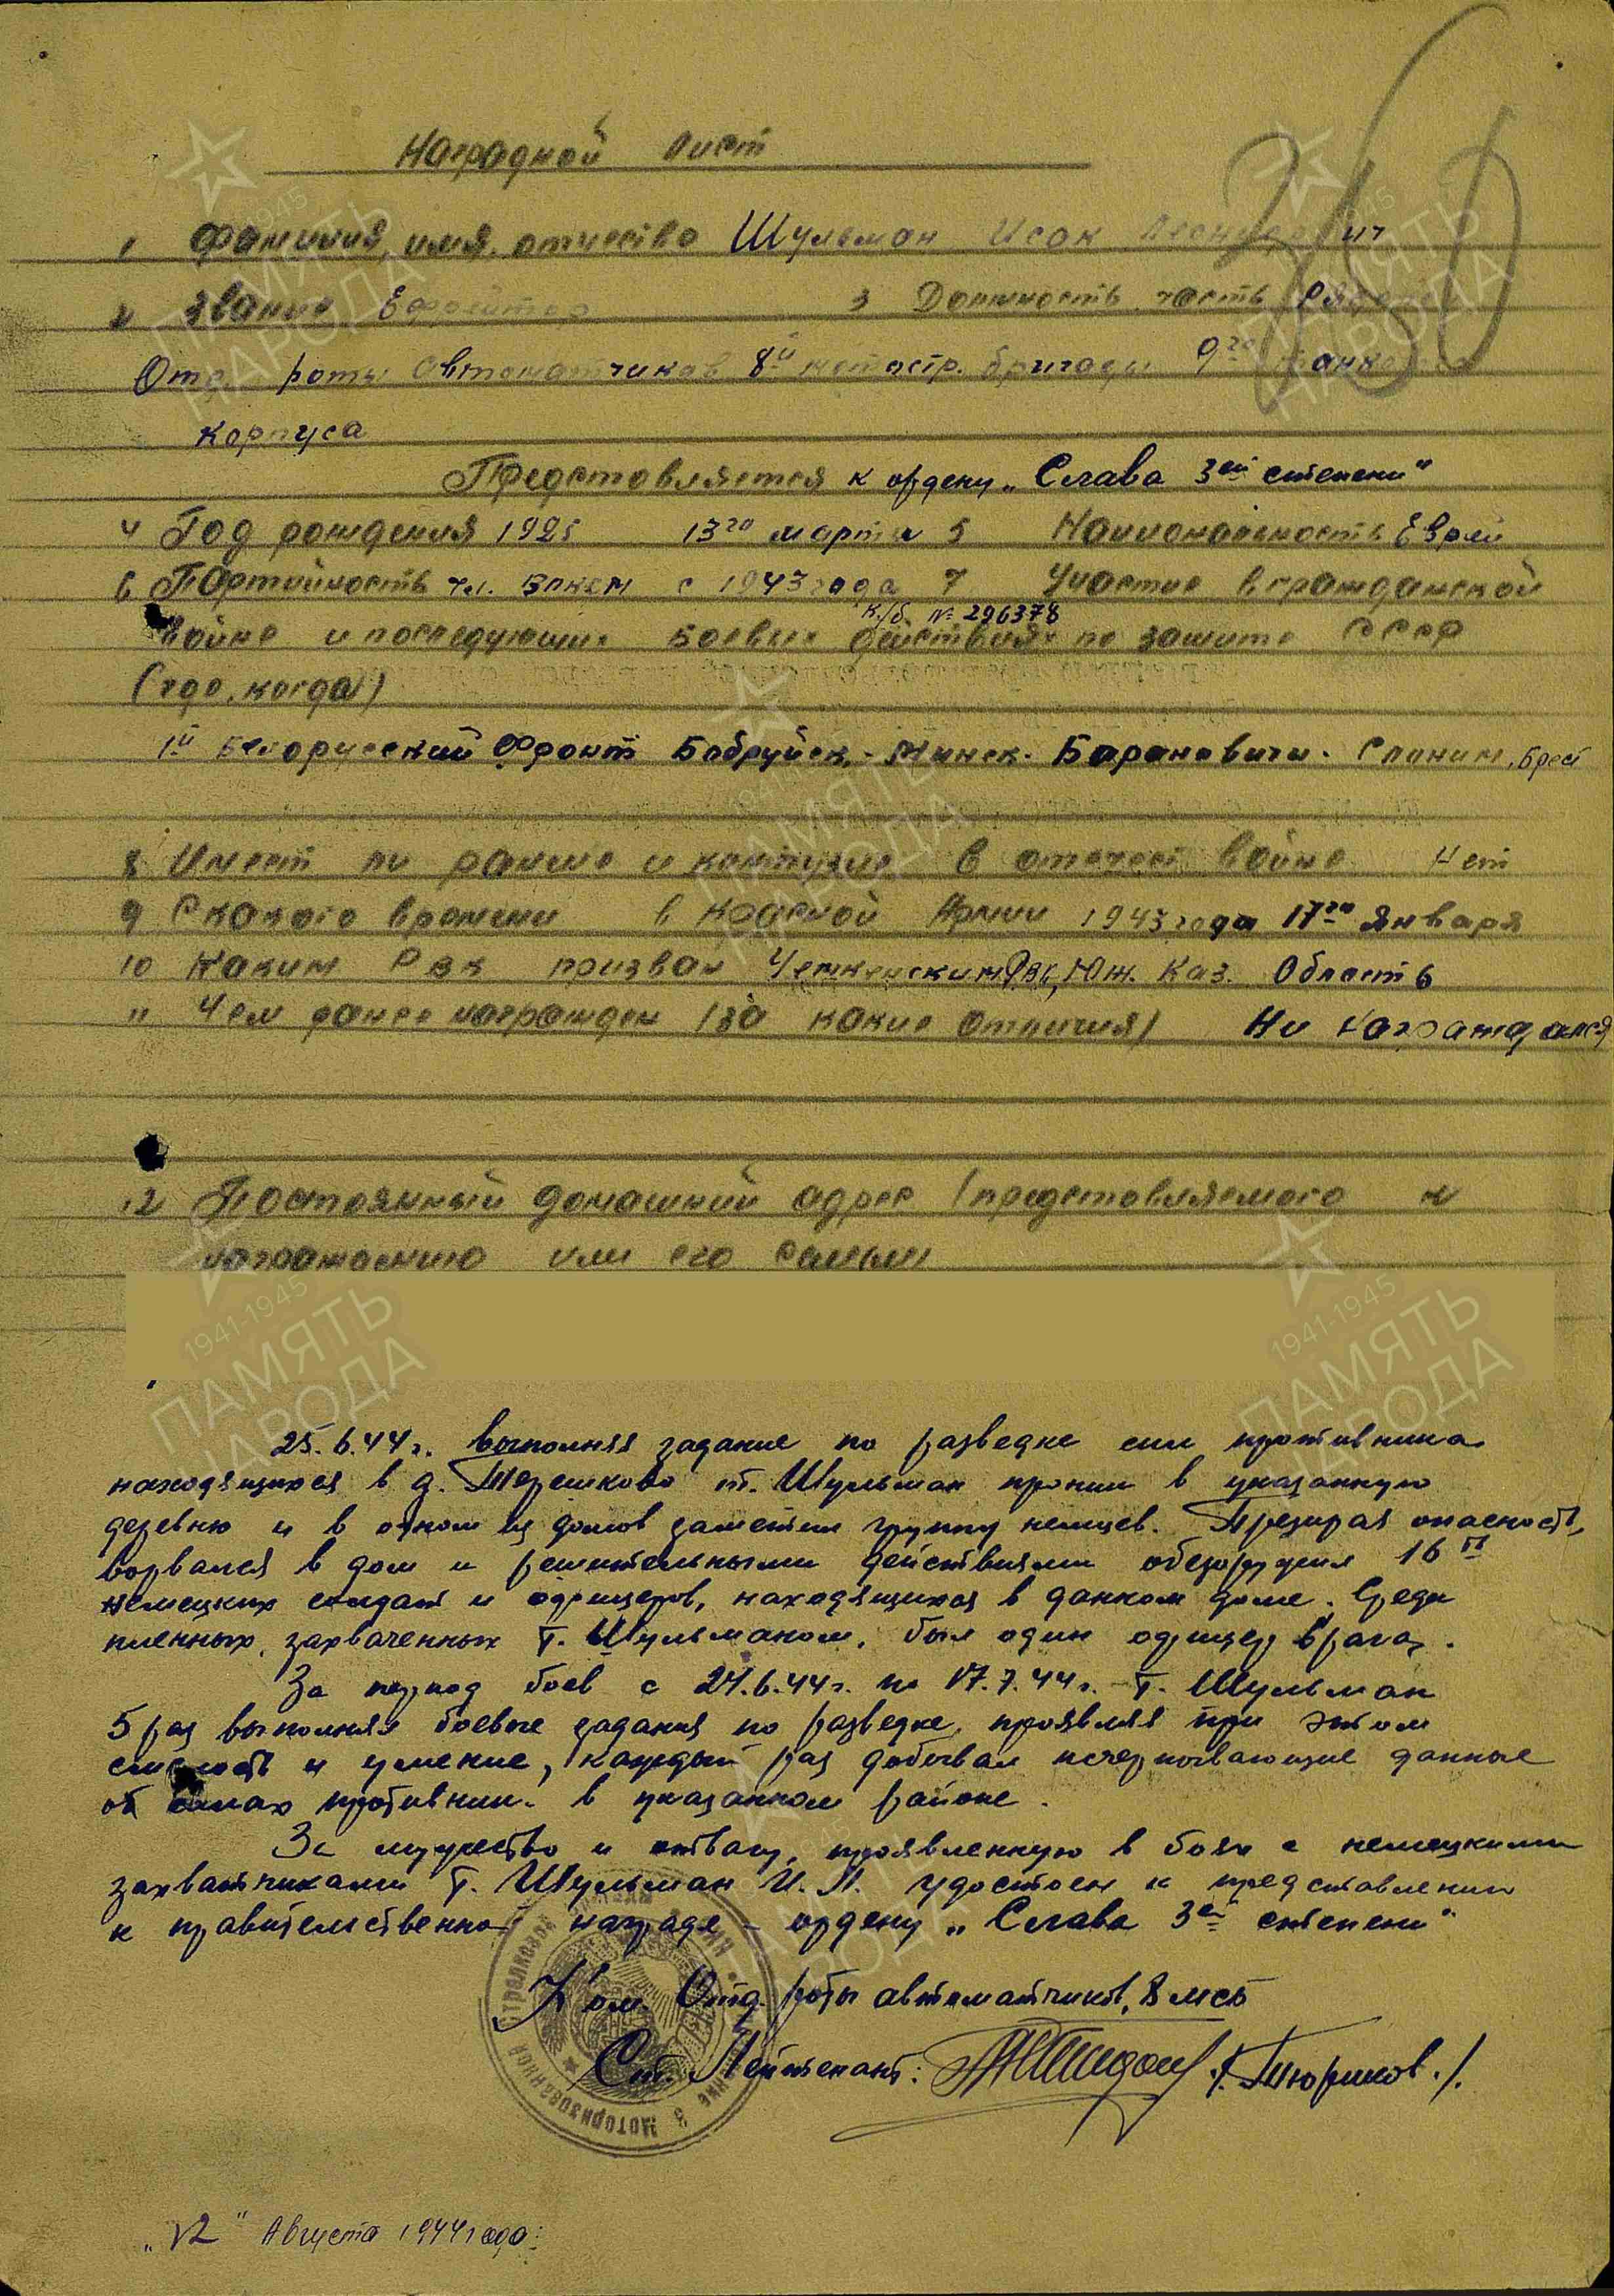 Наградной лист
1 Фамилия, имя, отчество Шульман Исак
2 Звание Ефрейтор 3 Должность, часть
Отд. роты автоматчиков 8й мотостр. бригады 9го танкового
корпуса
Представляется к ордену „Слава 3ей степени"
4 Год рождения 1925 13го марта 5 Национальность Еврей
6 Партийность чл. ВЛКСМ с 1943 года 7 Участие в гражданской
к/б. № 296378
войне и последующих боевых действиях по защите СССР
(где, когда)
1й Белорусский Фронт Бобруйск - Минск - Барановичи - Слоним, Брест
8 Имеет ли ранение и контузию в отечест. войне Нет
9 С какого времени в Красной Армии 1943 года 17го января
10 Каким РВК призван РВК, Юж. Каз. Область
11 Чем ранее награжден (за какие отличия) Не награждался
12 Постоянный домашний адрес (представляемого к
награждению или его семьи
25.6.44г. выполняя задание по разведке сил противника
находящихся в д. Терешково т. Шульман проник в указанную
деревню и в одном из домов заметил группу немцев. Презирая опасность,
ворвался в дом и решительными действиями обезоружил 16ть
немецких солдат и офицеров, находящихся в данном доме. Среди
пленных, захваченных т. Шульманом, был один офицер врага.
За период боев с 24.6.44г. по 17.7.44г. т. Шульман
5 раз выполнял боевые задания по разведке, проявляя при этом
смелость и умение, каждый раз добывал исчерпывающие данные
об силах противник. в указанном районе.
За мужество и отвагу, проявленную в боях с немецкими
захватчиками т. Шульман И. Л. удостоен к представлению
к правительственной награде - ордену „Слава 3ей степени"
Ком. Отд. роты автоматчиков, 8 мсб
Ст. Лейтенант: /Тюриков./
„12" Августа 1944 года:
1941-1945
ПАМЯТЬ
НАРОДА